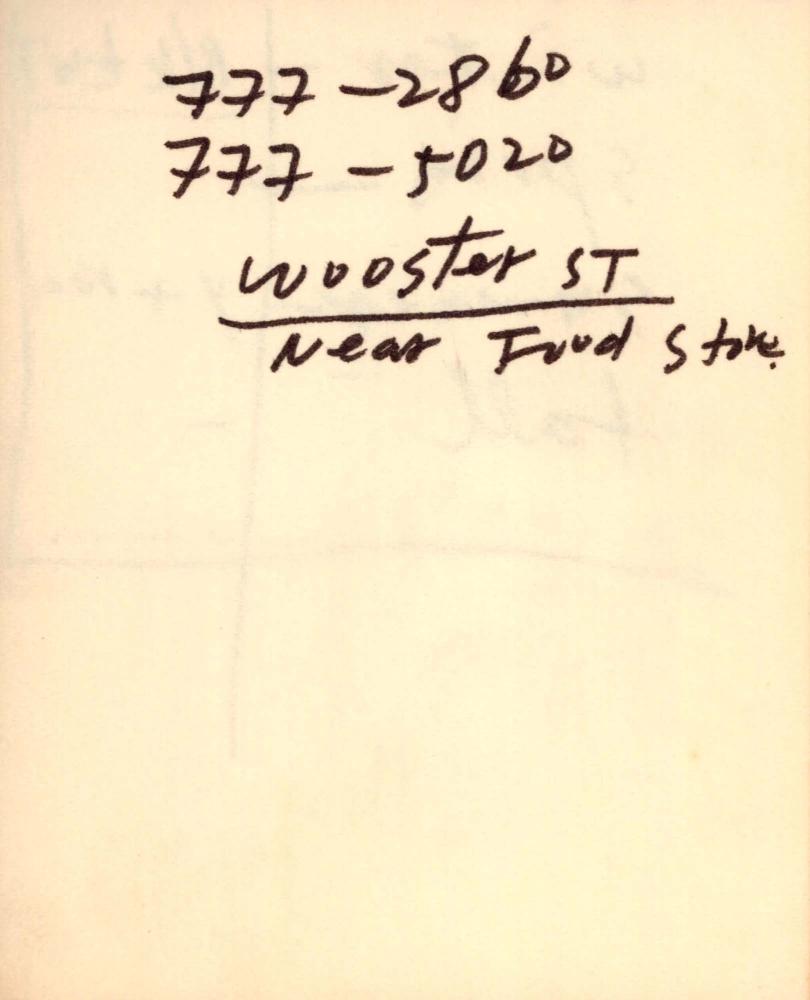 777-2860
777-5020
Wooster ST
Near Food Store